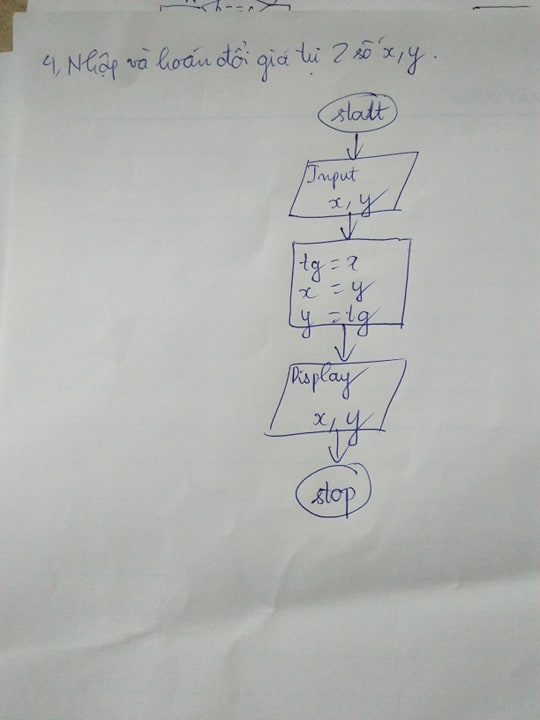 4, Nhập và hoán đổi giá trị 2 số x, y.
start
Input
x, y
tg = x
x = y
y = tg
Display
x, y
stop